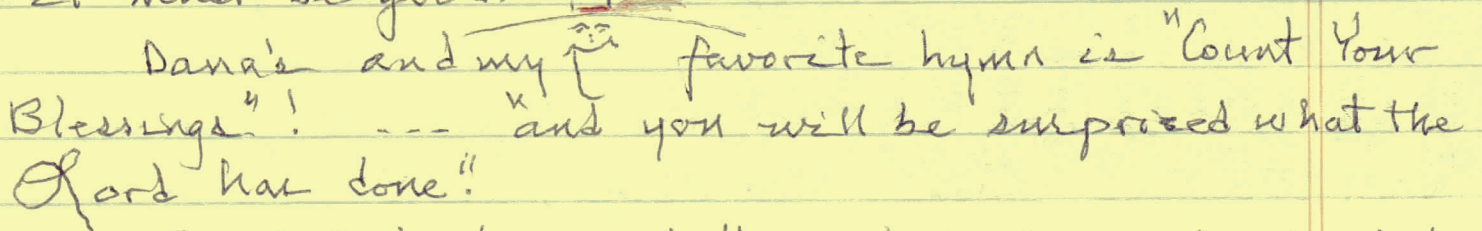 Dana's and my favorite hymn is "Count Your
Blessings"! --- "and you will be surprised what the
Lord has done".